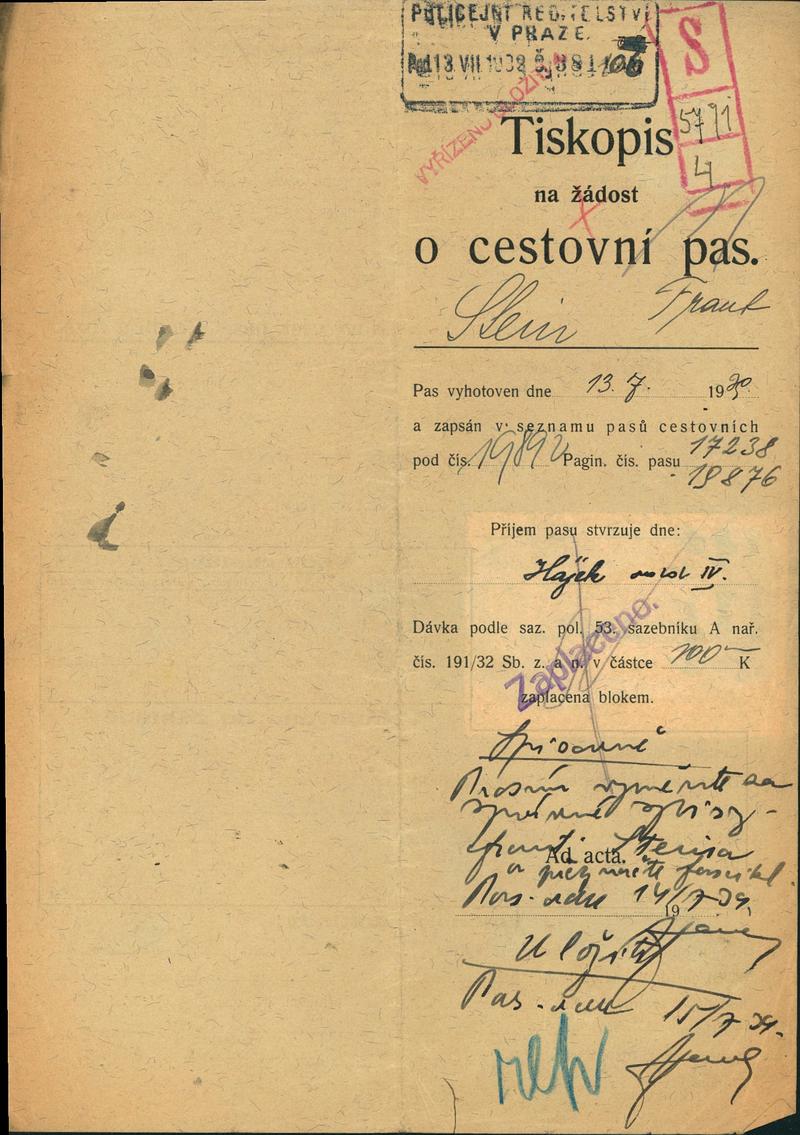 POLICEJNÍ ŘEDITELSTVÍ
V PRAZE
13 VII
S
5791
4
VYŘÍZENO
Tiskopis
na žádost
o cestovní pas.
Stein Frant
Pas vyhotoven dne 13. 7. 1939
a zapsán v seznamu pasů cestovních
pod čís. 19892 Pagin. čís. pasu 17238
19876
Příjem pasu stvrzuje dne:
Hájek IV.
Dávka podle saz. pol. 53. sazebníku A nař.
čís. 191/32 Sb. z. a n. v částce 100 K
Zaplaceno.
zaplacena blokem.
Prosím vyměnite za
správné spisy
Frant. Steina
Ad acta.
a fascikl
Pas. 14/7 39.
19
Uložiti
Pas. 15/7 39.